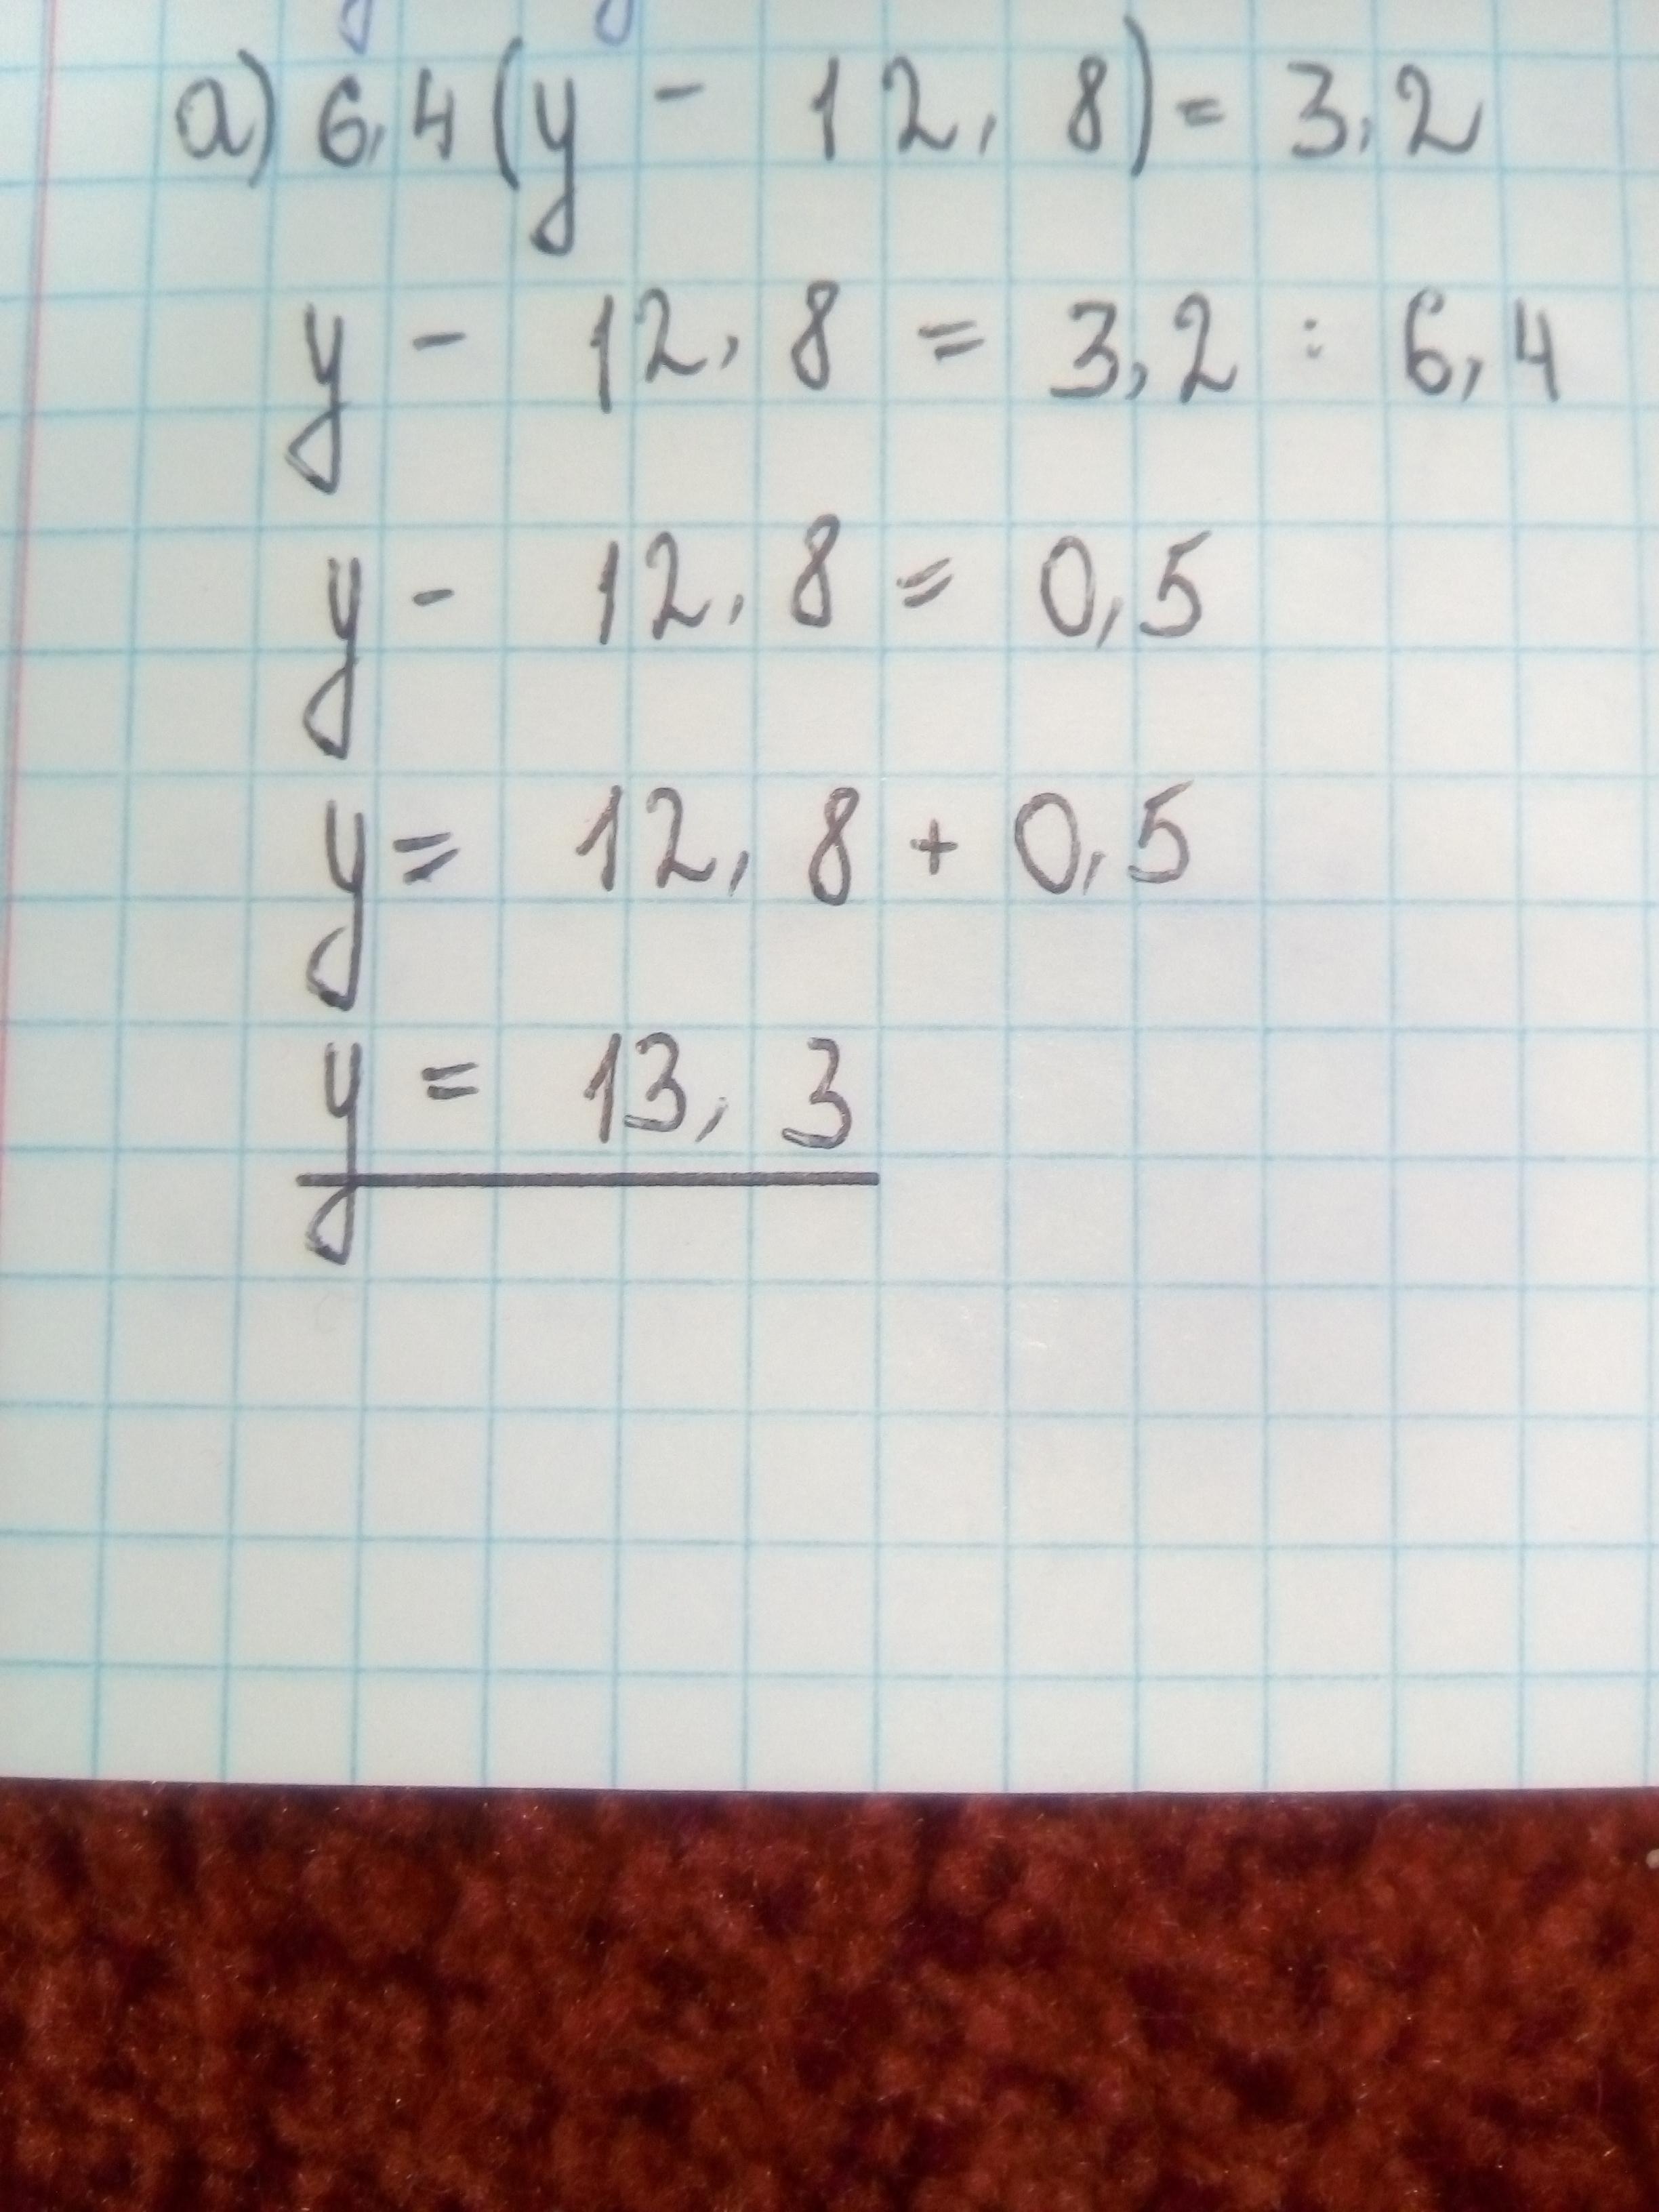 а) 6,4(y - 12,8) = 3,2
y - 12,8 = 3,2 : 6,4
y - 12,8 = 0,5
y = 12,8 + 0,5
y = 13,3